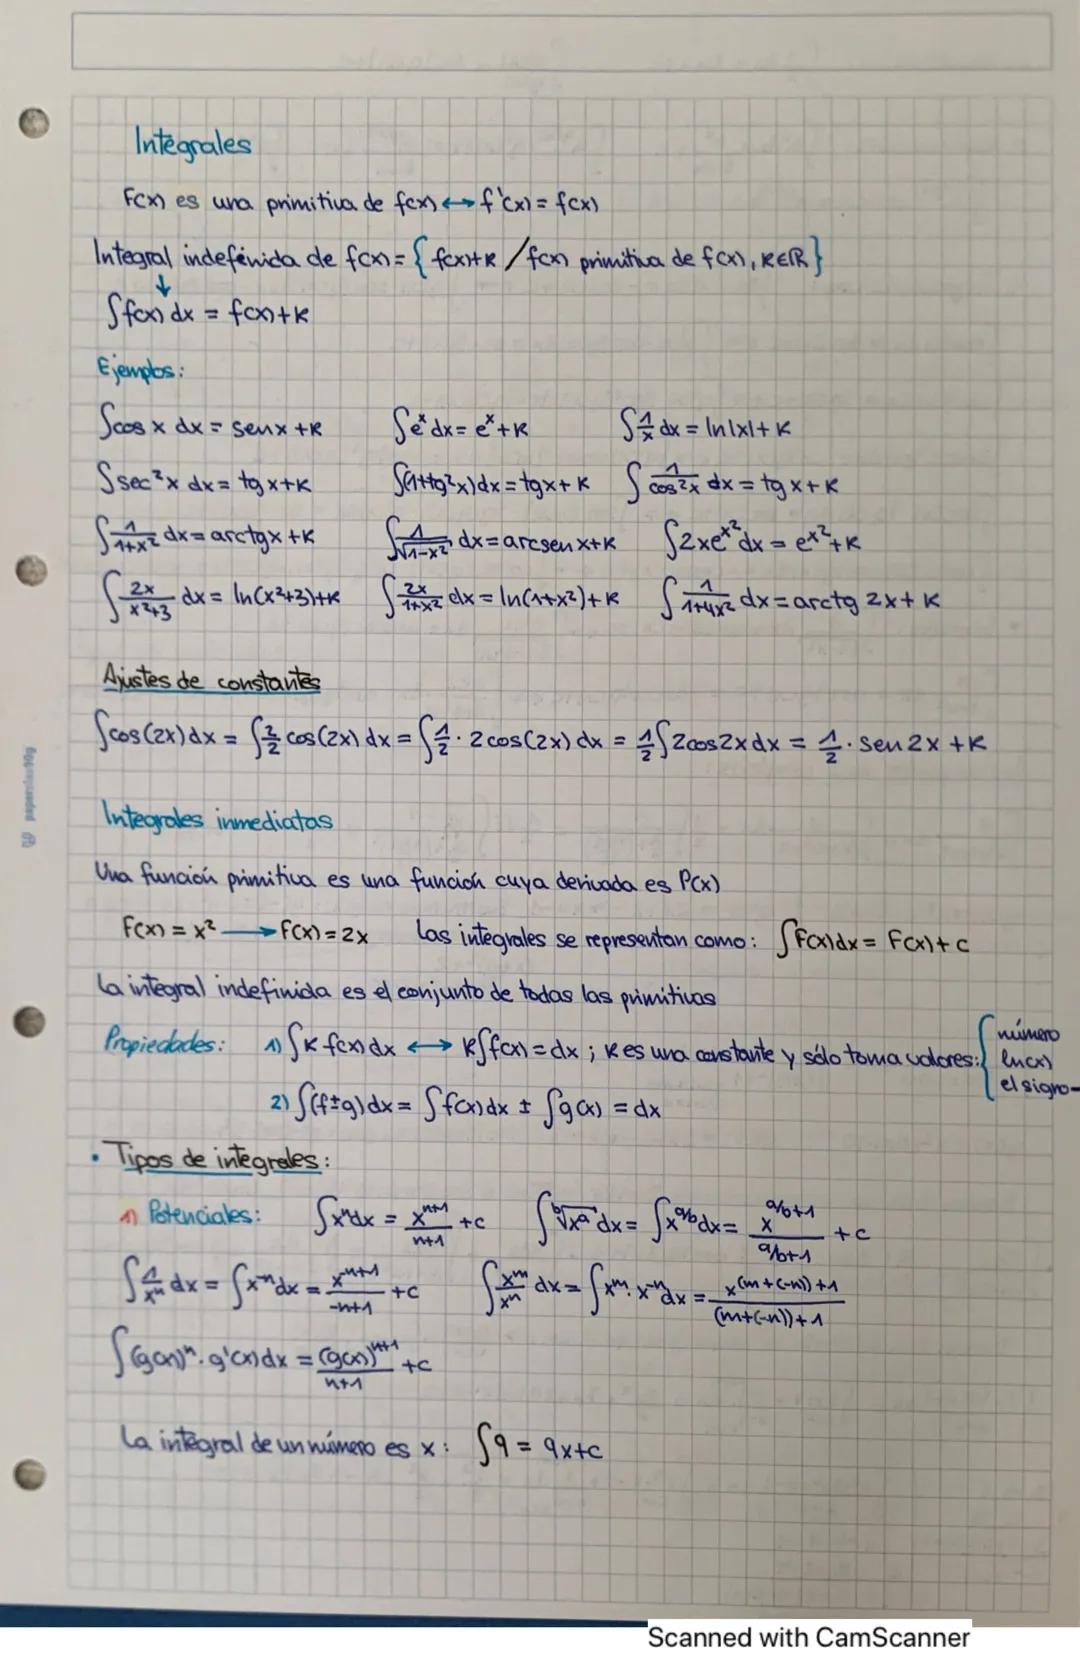 Integrales
F(x) es una primitiva de f(x) ↔ f'(x) = f(x)
Integral indefinida de f(x) = { f(x)+K / f(x) primitiva de f(x), K∈ℝ }
↓
∫f(x) dx = f(x)+K
Ejemplos:
∫cos x dx = senx +K   ∫e^x dx = e^x +K   ∫1/x dx = ln|x|+K
∫sec²x dx = tg x+K   ∫(1+tg²x)dx = tgx+K   ∫1/cos²x dx = tg x+K
∫1/(1+x²) dx = arctgx +K   ∫1/√(1-x²) dx = arcsen x+K   ∫2xe^(x²) dx = e^(x²)+K
∫2x/(x²+3) dx = ln(x²+3)+K   ∫2x/(1+x²) dx = ln(1+x²)+K   ∫1/(1+4x²) dx = arctg 2x+K
Ajustes de constantes
∫cos(2x)dx = ∫2/2 cos(2x)dx = ∫1/2 · 2cos(2x)dx = 1/2∫2cos2xdx = 1/2 · sen2x +K
Integrales inmediatas
Una función primitiva es una función cuya derivada es P(x)
F(x) = x² → F(x) = 2x   Las integrales se representan como: ∫F(x)dx = F(x)+c
La integral indefinida es el conjunto de todas las primitivas
Propiedades: 1) ∫K f(x)dx ↔ K∫f(x) = dx ; K es una constante y sólo toma valores: { número
ln(x)
el signo -
2) ∫(f±g)dx = ∫f(x)dx ± ∫g(x) = dx
• Tipos de integrales:
1) Potenciales: ∫x^n dx = x^(n+1)/(n+1) +c   ∫ᵇ√(x^a) dx = ∫x^(a/b) dx = x^(a/b+1)/(a/b+1) +c
∫1/x^n dx = ∫x^(-n) dx = x^(-n+1)/(-n+1) +c   ∫x^m/x^n dx = ∫x^m · x^(-n) dx = x^((m+(-n))+1)/((m+(-n))+1)
∫(g(x))^n · g'(x)dx = (g(x))^(n+1)/(n+1) +c
La integral de un número es x: ∫9 = 9x+c
paperclas90g
Scanned with CamScanner